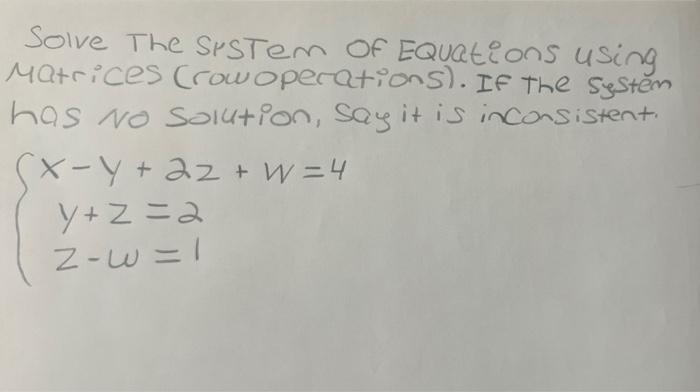 Solve The System Of Equations using
Matrices (row operations). If The System
has No Solution, Say it is inconsistent.
x - y + 2z + w = 4
y + z = 2
z - w = 1